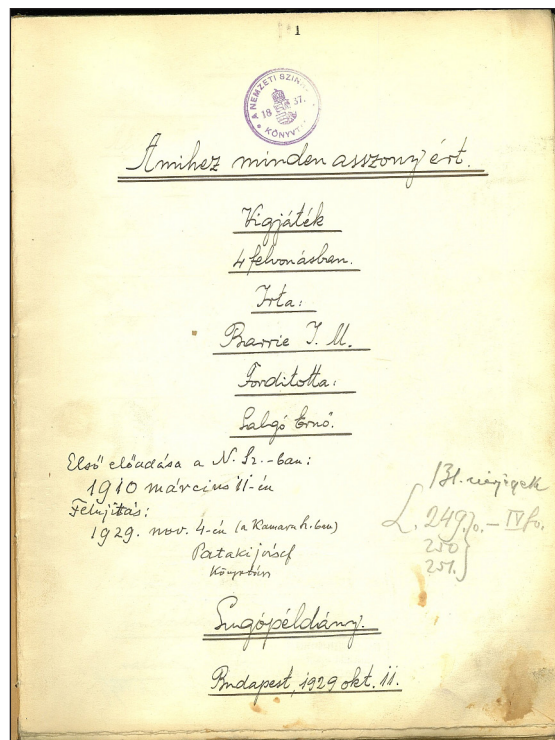 1
A NEMZETI SZINH
1837.
KÖNYVT
Amihez minden asszony ért.
Vigjáték
4 felvonásban.
Irta:
Barrie J. M.
Forditotta:
Salgó Ernő.
Első előadása a N. Sz.-ban:
1910 március 11-én
Felujitás:
1929. nov. 4-én (a Kamara h.ban)
Pataki József
Könyvtáros
131.
L. 249 lo. – IV fo.
250
251.
Sugópéldány.
Budapest, 1929 okt. 11.